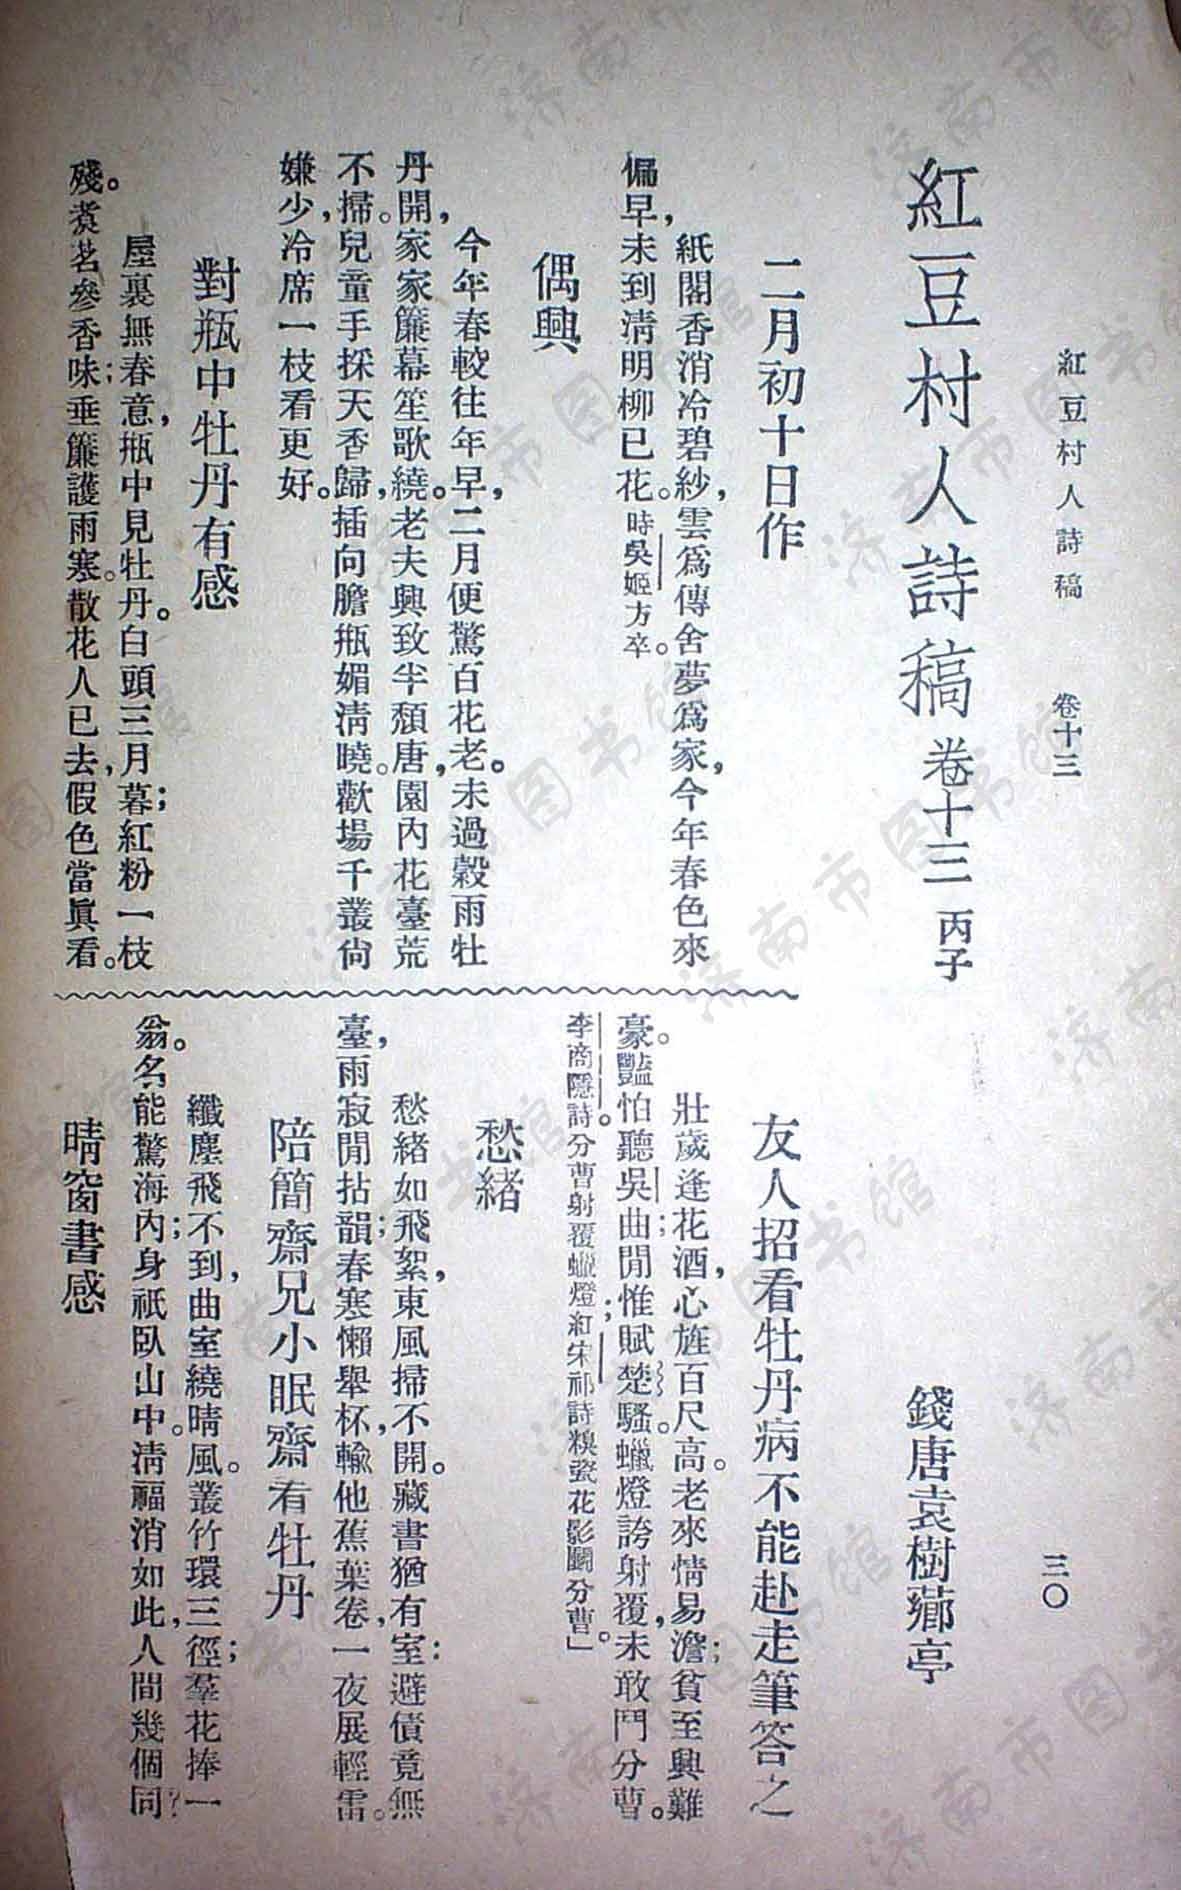 紅豆村人詩稿　卷十三　三〇
紅豆村人詩稿　卷十三　丙子
錢唐袁樹薌亭
二月初十日作
紙閣香消冷碧紗，雲爲傳舍夢爲家，今年春色來
偏早，未到淸明柳已花。時吳姬方卒。
偶興
今年春較往年早，二月便驚百花老。未過穀雨牡
丹開，家家簾幕笙歌繞。老夫興致半頹唐，園內花臺荒
不掃。兒童手採天香歸，插向膽甁媚淸曉。歡場千叢尙
嫌少，冷席一枝看更好。
對瓶中牡丹有感
屋裏無春意，甁中見牡丹。白頭三月暮；紅粉一枝
殘。煑茗參香味；垂簾護雨寒。散花人已去，假色當眞看。
友人招看牡丹病不能赴走筆答之
壯歲逢花酒，心旌百尺高。老來情易澹；貧至興難
豪。豔怕聽吳曲；閒惟賦楚騷。蠟燈誇射覆，未敢鬥分曹。
李商隱詩。分曹射覆蠟燈紅；宋祁詩糢瓷花影鬭分曹。」
愁緒
愁緒如飛絮，東風掃不開。藏書猶有室：避債竟無
臺，雨寂閒拈韻；春寒懶舉杯，輸他蕉葉卷，一夜展輕雷。
陪簡齋兄小眠齋看牡丹
纖塵飛不到，曲室繞晴風。叢竹環三徑；羣花捧一
翁。名能驚海內；身祇臥山中。淸福消如此，人間幾個同？
晴窗書感
济南市图书馆